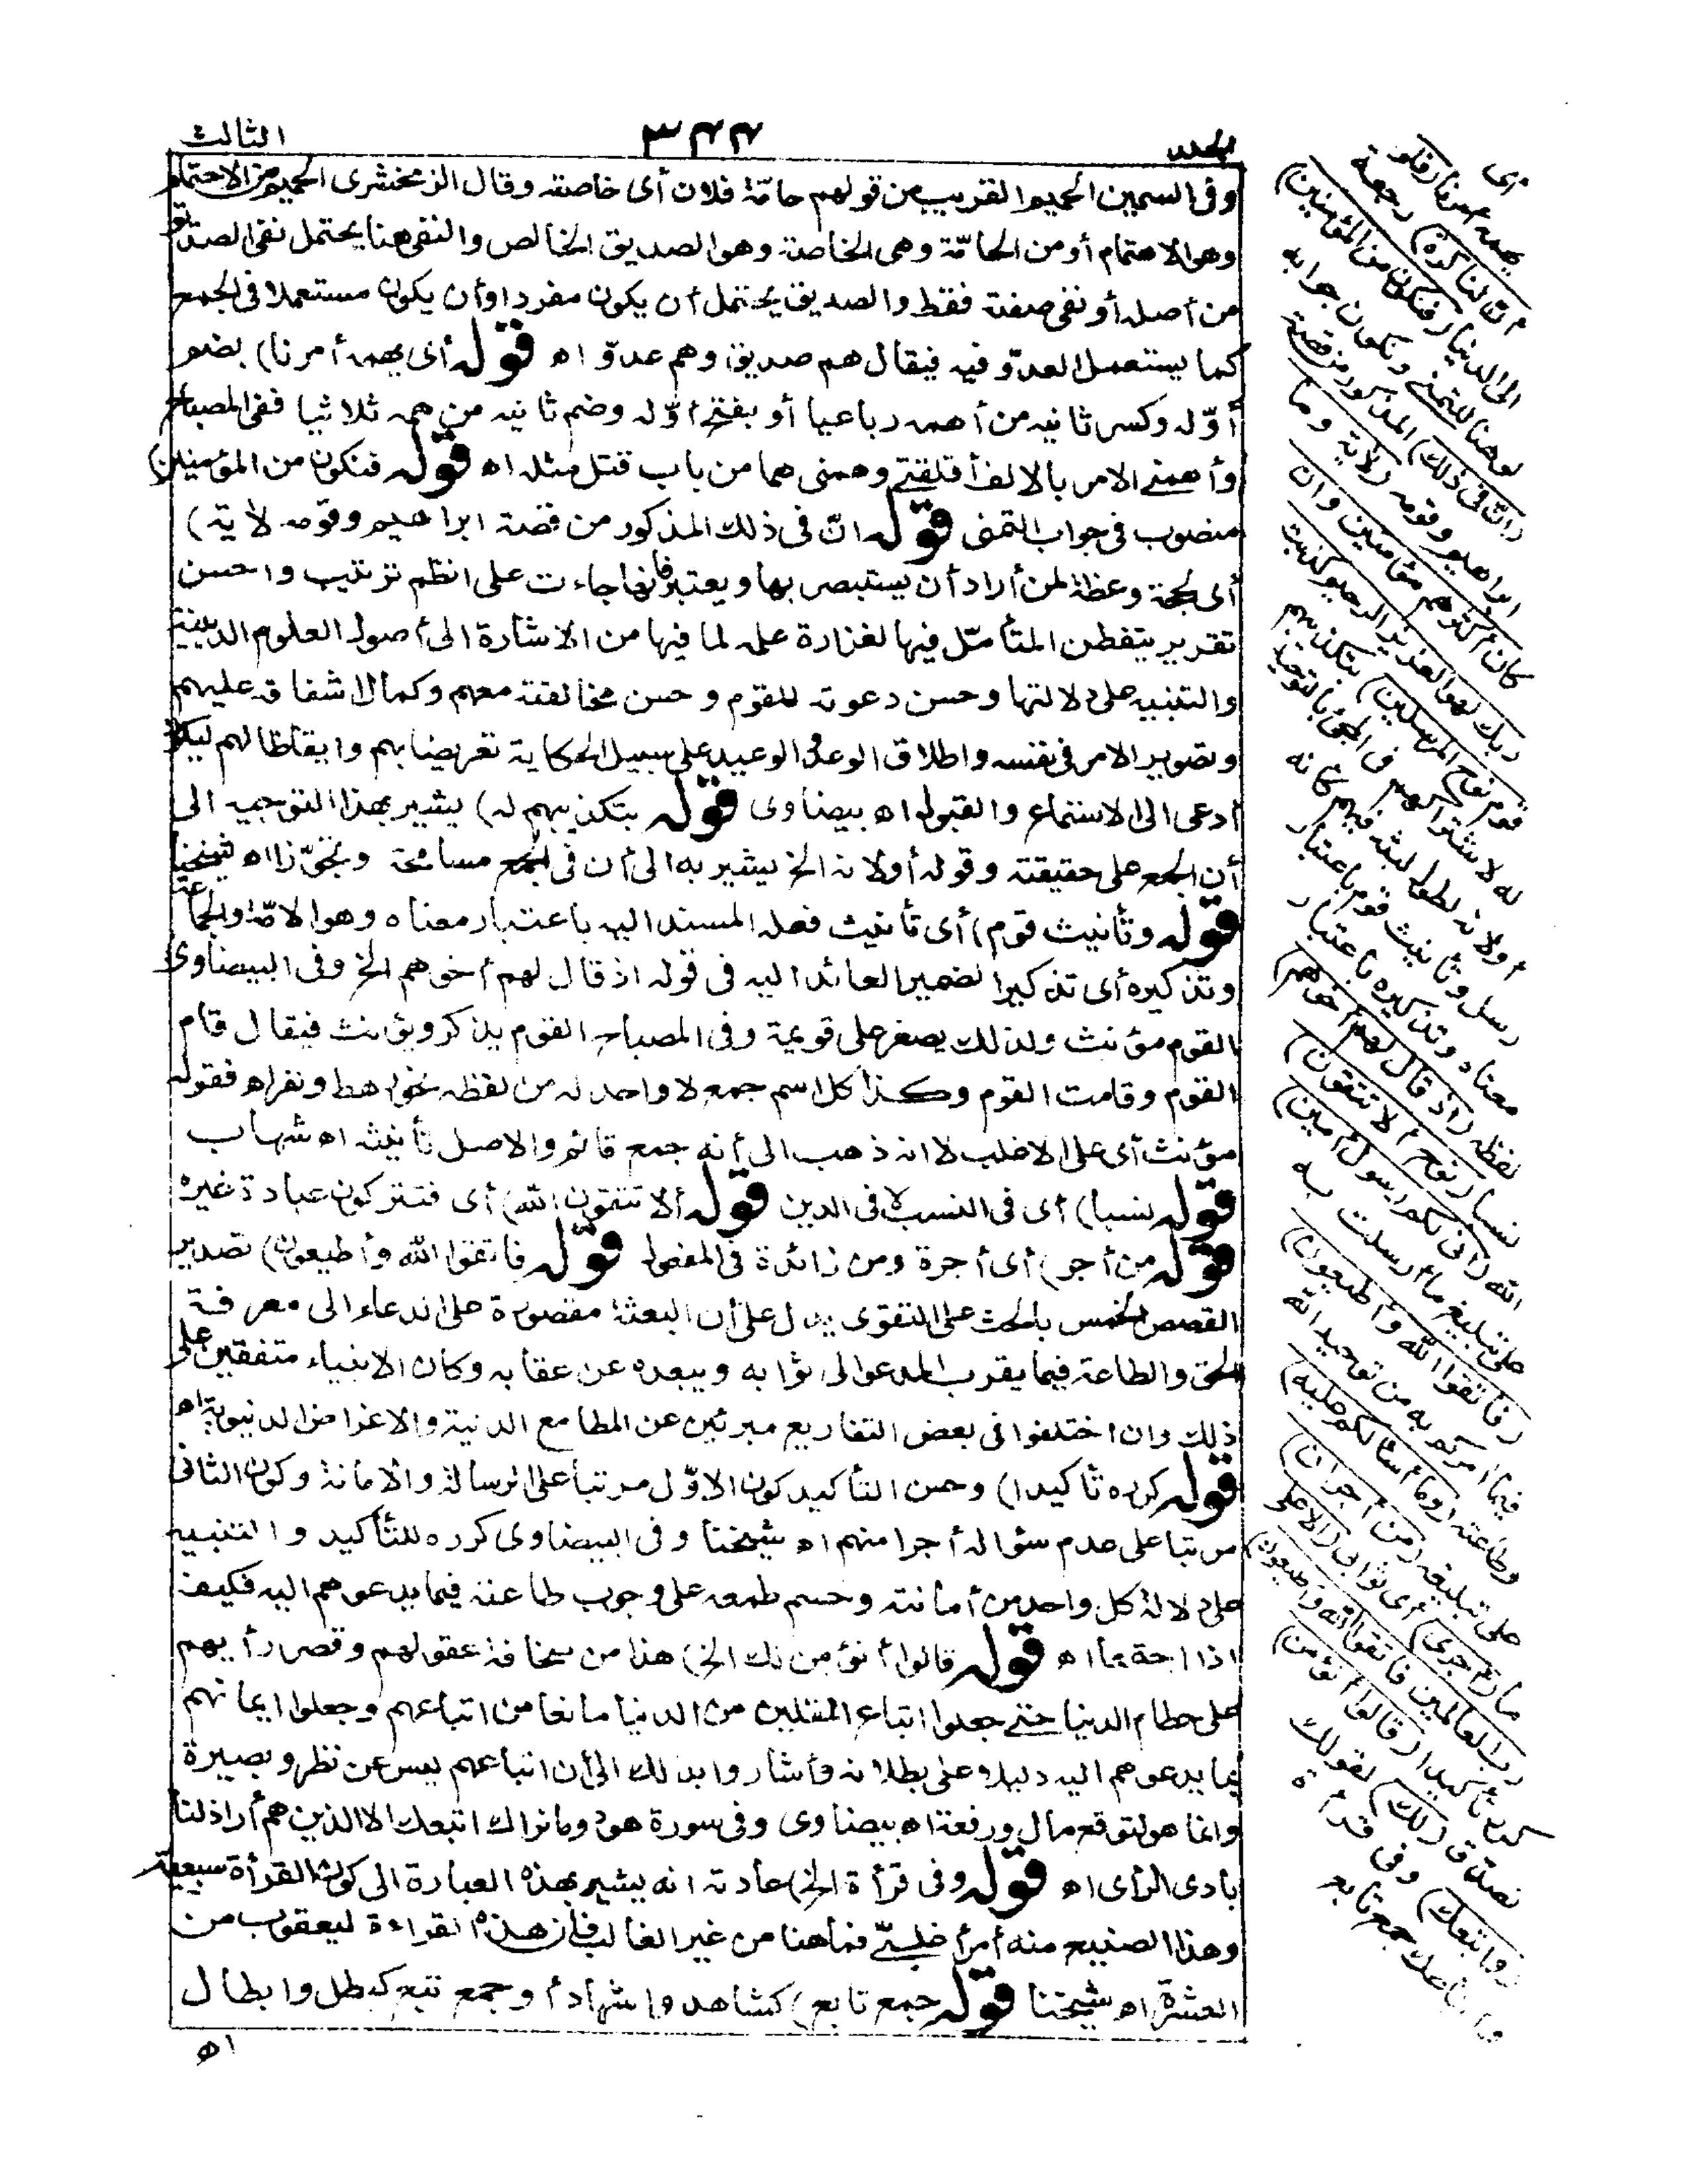 الجلد
٣٤٤
الثالث
وفى السمين الحميم القريب من قولهم حامّة فلان أى خاصته وقال الزمخشرى الحميم من الاحتمام
وهو الاهتمام أو من الحامّة وهى الخاصة وهو الصديق الخالص والنفى هنا يحتمل نفى الصديق
من أصله أو نفى صفته فقط والصديق يحتمل أن يكون مفردا وأن يكون مستعملا فى الجمع
كما يستعمل العدوّ فيه فيقال هم صديق وهم عدوّ اه قوله أى يهمه أمرنا) بضم
أوّله وكسر ثانيه من أهمه رباعيا أو بفتح أوّله وضم ثانيه من همه ثلاثيا ففى المصباح
وأهمنى الامر بالالف أقلقنى وهمنى هما من باب قتل مثله اه قوله فنكون من المؤمنين)
منصوب فى جواب التمنى قوله انّ فى ذلك المذكور من قصة ابراهيم وقومه لأية)
أى لحجة وعظة لمن أراد أن يستبصر بها ويعتبر فانها جاءت على انظم ترتيب واحسن
تقرير يتفطن المتأمّل فيها لغزارة علمه لما فيها من الاشارة الى أصول العلوم الدينية
والتنبيه على دلالتها وحسن دعوته للقوم وحسن مخالقته معهم وكمال اشفاقه عليهم
وتصوير الامر فى نفسه واطلاق الوعد والوعيد على سبيل الحكاية تعريضا بهم وايقاظا لهم ليكون
أدعى الى الاستماع والقبول اه بيضاوى قوله بتكذيبهم له) يشير بهذا التوجيه الى
أن الجمع على حقيقته وقوله أولانه الخ يشير به الى أن فى الجمع مسامحة وتجوّزا اه شيخنا
قوله وتأنيث قوم) أى تأنيث فعله المسند اليه باعتبار معناه وهو الامّة والجماعة
وتذكيره أى تذكير الضمير العائد اليه فى قوله اذ قال لهم أخوهم الخ وفى البيضاوى
القوم مؤنث ولذلك يصغر على قويمة وفى المصباح القوم يذكر ويؤنث فيقال قام
القوم وقامت القوم وكذا كل اسم جمع لا واحد له من لفظه نحو رهط ونفر اه فقوله
مؤنث أى على الاغلب لا انه ذهب الى أنه جمع قائم والاصل تأنيثه اه شهاب
قوله نسبا) أى فى النسب لا فى الدين قوله ألا تتقون الله) أى فتتركون عبادة غيره
قوله من أجر) أى أجرة ومن زائدة فى المفعول قوله فاتقوا الله وأطيعون) تصدير
القصص الخمس بالحث على التقوى يدل على أن البعثة مقصورة على الدعاء الى معرفة
الحق والطاعة فيما يقرب المدعو الى ثوابه ويبعده عن عقابه وكان الانبياء متفقين على
ذلك وان اختلفوا فى بعض التفاريع مبرئين عن المطامع الدنية والاغراض الدنيوية اه
قوله كرره تأكيدا) وحسن التأكيد كون الاوّل مرتبا على الرسالة والامانة وكون الثانى
مرتبا على عدم سؤاله أجرا منهم اه شيخنا وفى البيضاوى كرره للتأكيد والتنبيه
على دلالة كل واحد من أمانته وحسم طمعه على وجوب طاعته فيما يدعوهم اليه فكيف
اذا اجتمعا اه قوله قالوا أنؤمن لك الخ) هذا من سخافة عقولهم وقصر رأيهم
على حطام الدنيا حتى جعلوا اتباع المقلين من الدنيا مانعا من اتباعهم وجعلوا ايمانهم
بما يدعوهم اليه دليلا على بطلانه وأشاروا بذلك الى أن اتباعهم ليس عن نظر وبصيرة
وانما هو لتوقع مال ورفعة اه بيضاوى وفى سورة هود وما نراك اتبعك الا الذين هم أراذلنا
بادى الرأى اه قوله وفى قرأة الخ) عادته انه يشير بهذه العبارة الى كون القرأة سبعية
وهذا الصنيع منه أمر أغلبىّ فما هنا من غير الغالب فأن هذه القراءة ليعقوب من
العشرة اه شيخنا قوله جمع تابع) كشاهد واشهاد أو جمع تبع كبطل وابطال
اه
أى
يهمه أمرنا (فلو
أنّ لنا كرة) رجعة
الى الدنيا (فنكون من المؤمنين)
لو هنا للتمنى ونكون جوابه
(انّ فى ذلك) المذكور من قصة
ابراهيم وقومه (لأية وما
كان أكثرهم مؤمنين وان
ربك لهو العزيز الرحيم كذبت
قوم نوح المرسلين) بتكذيبهم
له لاشتراكهم فى المجئ بالتوحيد
أو لانه لطول لبثه فيهم كانه
رسل وتأنيث قوم باعتبار
معناه وتذكيره باعتبار
لفظه (اذ قال لهم أخوهم)
نسبا (نوح ألا تتقون)
الله (انى لكم رسول أمين)
على تبليغ ما أرسلت به
(فاتقوا الله وأطيعون)
فيما آمركم به من توحيد الله
وطاعته (وما أسألكم عليه)
على تبليغه (من أجر ان)
ما (أجرى) أى ثوابى (الا على
رب العالمين فاتقوا الله وأطيعون)
كرره تأكيدا (قالوا أنؤمن)
نصدق (لك) لقولك
(واتبعك) وفى قرأة
واتباعك جمع تابع